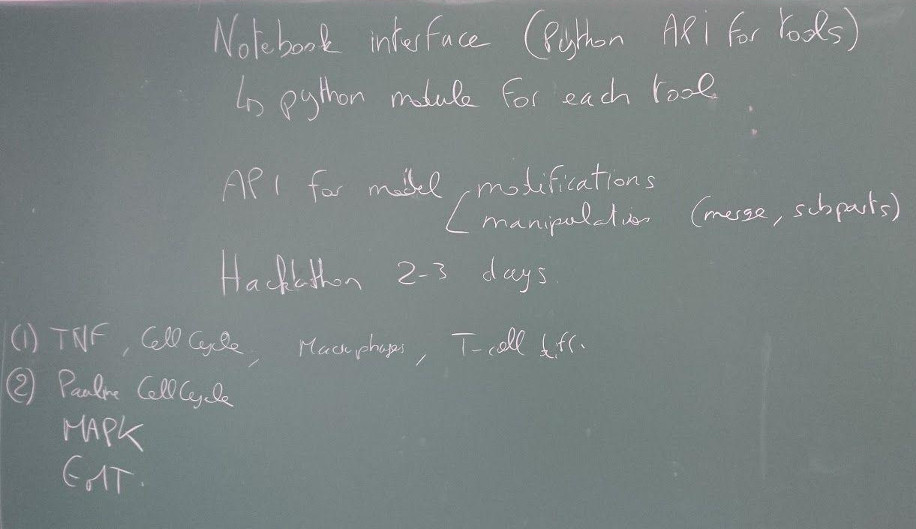 Notebook interface (Python API for tools)
↳ python module for each tool
API for model modifications
manipulation (merge, subparts)
Hackathon 2-3 days.
(1) TNF, Cell Cycle, Macrophages, T-cell diff.
(2) Pauline Cell Cycle
MAPK
EMT.